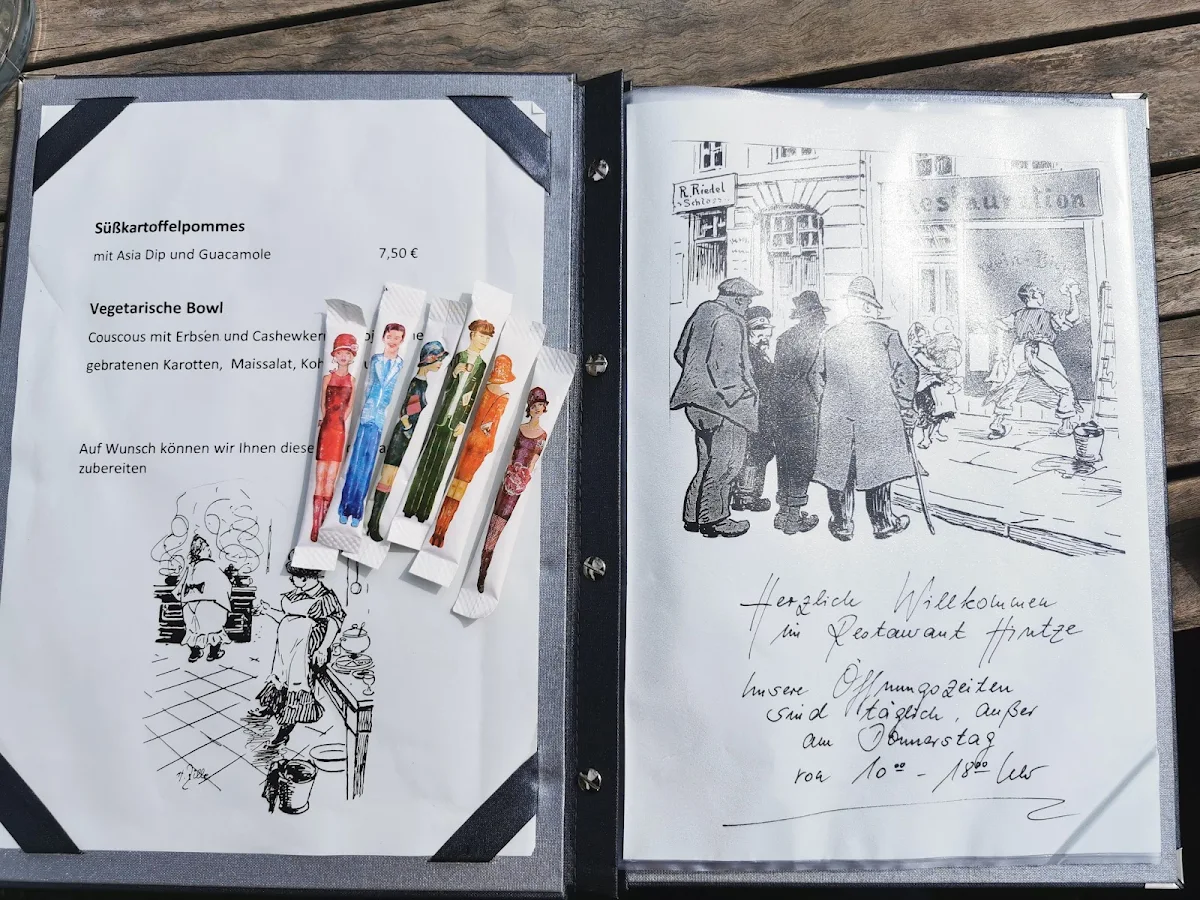 Süßkartoffelpommes
mit Asia Dip und Guacamole 7,50 €
Vegetarische Bowl
Couscous mit Erbsen und Cashewken
gebratenen Karotten, Maissalat, Koh
Auf Wunsch können wir Ihnen diese
zubereiten
H. Zille
R. Riedel
Schloss
Restauration
Herzlich Willkommen
im Restaurant Hintze
Unsere Öffnungszeiten
sind täglich, außer
am Donnerstag
von 10⁰⁰ - 18⁰⁰ Uhr